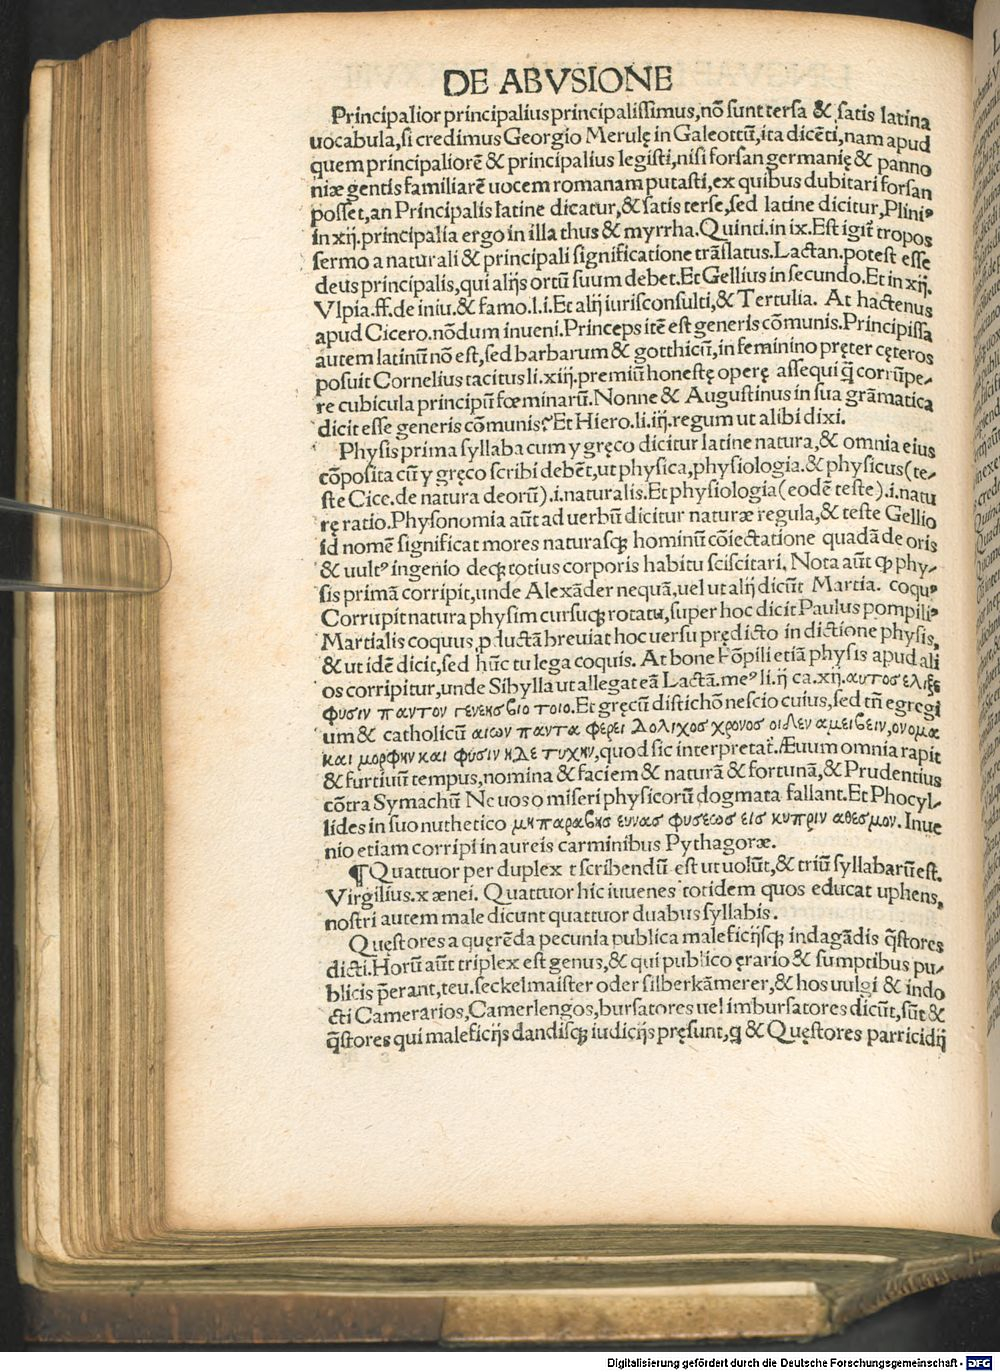 DE ABVSIONE
Principalior principalius principalissimus, nõ sunt tersa & satis latina
uocabula, si credimus Georgio Merulę in Galeottũ, ita dicẽti, nam apud
quem principaliorẽ & principalius legisti, nisi forsan germanię & panno
niæ gentis familiarẽ uocem romanam putasti, ex quibus dubitari forsan
posset, an Principalis latine dicatur, & satis terse, sed latine dicitur, Pliniꝰ
in xij. principalia ergo in illa thus & myrrha. Quinti. in ix. Est igit̃ tropos
sermo a naturali & principali significatione trãslatus. Lactan. potest esse
deus principalis, qui alijs ortũ suum debet. Et Gellius in secundo. Et in xij.
Vlpia. ff. de iniu. & famo. l. i. Et alij iurisconsulti, & Tertulia. At hactenus
apud Cicero. nõdum inueni. Princeps itẽ est generis cõmunis. Principissa
autem latinũ nõ est, sed barbarum & gotthicũ, in feminino pręter cęteros
posuit Cornelius tacitus li. xiij. premiũ honestę operę assequi q̃ corrũpe⸗
re cubicula principũ fœminarũ. Nonne & Augustinus in sua grãmatica
dicit esse generis cõmunis? Et Hiero. li. iij. regum ut alibi dixi.
Physis prima syllaba cum y gręco dicitur latine natura, & omnia eius
cõposita cũ y gręco scribi debẽt, ut physica, physiologia. & physicus (te⸗
ste Cice. de natura deorũ). i. naturalis. Et physiologia (eodẽ teste). i. natu
rę ratio. Physonomia aũt ad uerbũ dicitur naturæ regula, & teste Gellio
id nomẽ significat mores naturasqꝫ hominũ cõiectatione quadã de oris
& uultꝰ ingenio deqꝫ totius corporis habitu sciscitari. Nota aũt ꝙ phy⸗
sis primã corripit, unde Alexãder nequã, uel ut alij dicũt Martia. coquꝰ
Corrupit natura physim cursuqꝫ rotatu, super hoc dicit Paulus pompiliꝰ
Martialis coquus, ꝓductã breuiat hoc uersu prędicto in dictione physis,
& ut idẽ dicit, sed hũc tu lega coquis. At bone Põpili etiã physis apud ali
os corripitur, unde Sibylla ut allegat eã Lactã. meꝰ li. ij ca. xij. αυτοσ ελιξε
φυσιν παντον γενεησβιο τοιο. Et gręcũ distichõ nescio cuius, sed tñ egregi
um & catholicũ αιων παντα φερει δολιχοσ χρονοσ οιδεν αμειβειν, ονομα
και μορφην και φυσιν ηδε τυχην, quod sic interpretat̃. Æuum omnia rapit
& furtiuũ tempus, nomina & faciem & naturã & fortunã, & Prudentius
cõtra Symachũ Ne uos o miseri physicorũ dogmata fallant. Et Phocyl⸗
lides in suo nuthetico μηπαραβησ ευνασ φυσεωσ εισ κυπριν αθεσμον. Inue
nio etiam corripi in aureis carminibus Pythagoræ.
¶ Quattuor per duplex t scribendũ est ut uolũt, & triũ syllabarũ est.
Virgilius. x ænei. Quattuor hic iuuenes totidem quos educat uphens,
nostri autem male dicunt quattuor duabus syllabis.
Quęstores a quęrẽda pecunia publica maleficijsqꝫ indagãdis q̃stores
dicti. Horũ aũt triplex est genus, & qui publico ęrario & sumptibus pu⸗
blicis p̃erant, teu. seckelmaister oder silberkãmerer, & hos uulgi & indo
cti Camerarios, Camerlengos, bursatores uel imbursatores dicũt, sũt &
q̃stores qui maleficijs dandisqꝫ iudicijs pręsunt, ꝗ & Quęstores parricidij